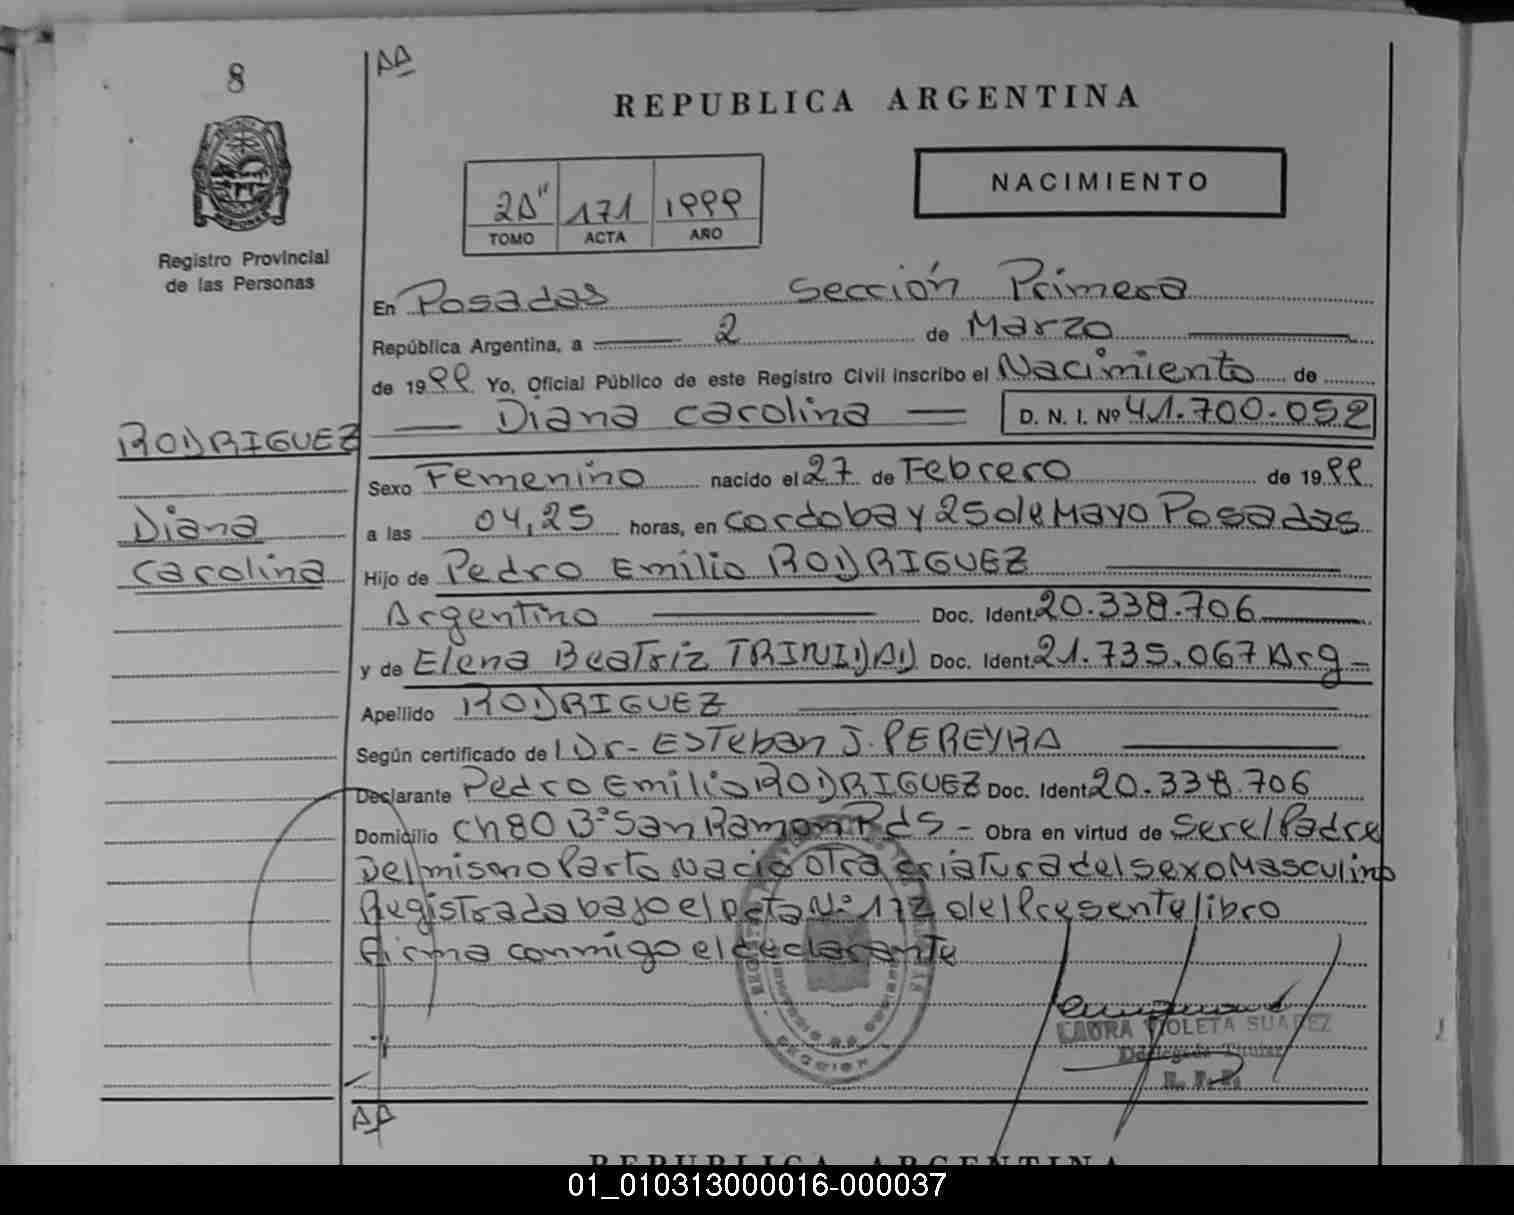 8
AA
REPUBLICA ARGENTINA
NACIMIENTO
2A" 171 1999
TOMO ACTA AÑO
Registro Provincial
de las Personas
En Posadas Sección Primera
República Argentina, a 2 de Marzo
de 1999 Yo, Oficial Público de este Registro Civil inscribo el Nacimiento de
Diana Carolina D. N. I. Nº 41.700.052
RODRIGUEZ
Diana
Carolina
Sexo Femenino nacido el 27 de Febrero de 1999
a las 04,25 horas, en Cordoba y 25 de Mayo Posadas
Hijo de Pedro Emilio RODRIGUEZ
Argentino Doc. Ident. 20.338.706
y de Elena Beatriz TRINIDAD Doc. Ident. 21.735.067 Arg
Apellido RODRIGUEZ
Según certificado de l Dr. Esteban J. PEREYRA
Declarante Pedro Emilio RODRIGUEZ Doc. Ident. 20.338.706
Domicilio Ch 80 Bº San Ramon Pds - Obra en virtud de Ser el Padre
Del mismo Parto Nacio otra criatura del sexo Masculino
Registrada bajo el acta Nº 172 del Presente libro
firma conmigo el declarante
LAURA VIOLETA SUAREZ
Delegada Titular
R. P. P.
AA
REPUBLICA ARGENTINA
01_010313000016-000037